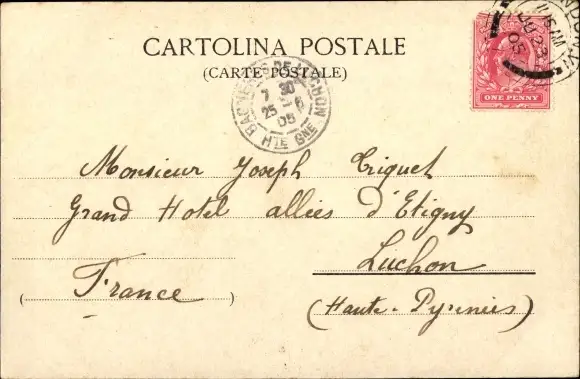 CARTOLINA POSTALE
(CARTE POSTALE)
ONE PENNY
11.15 AM
05
BAGNERES DE LUCHON
7 30
25 6
05
HTE GNE
Monsieur Joseph Triquet
Grand Hotel allées d'Etigny
Luchon
France
(Haute-Pyrénées)